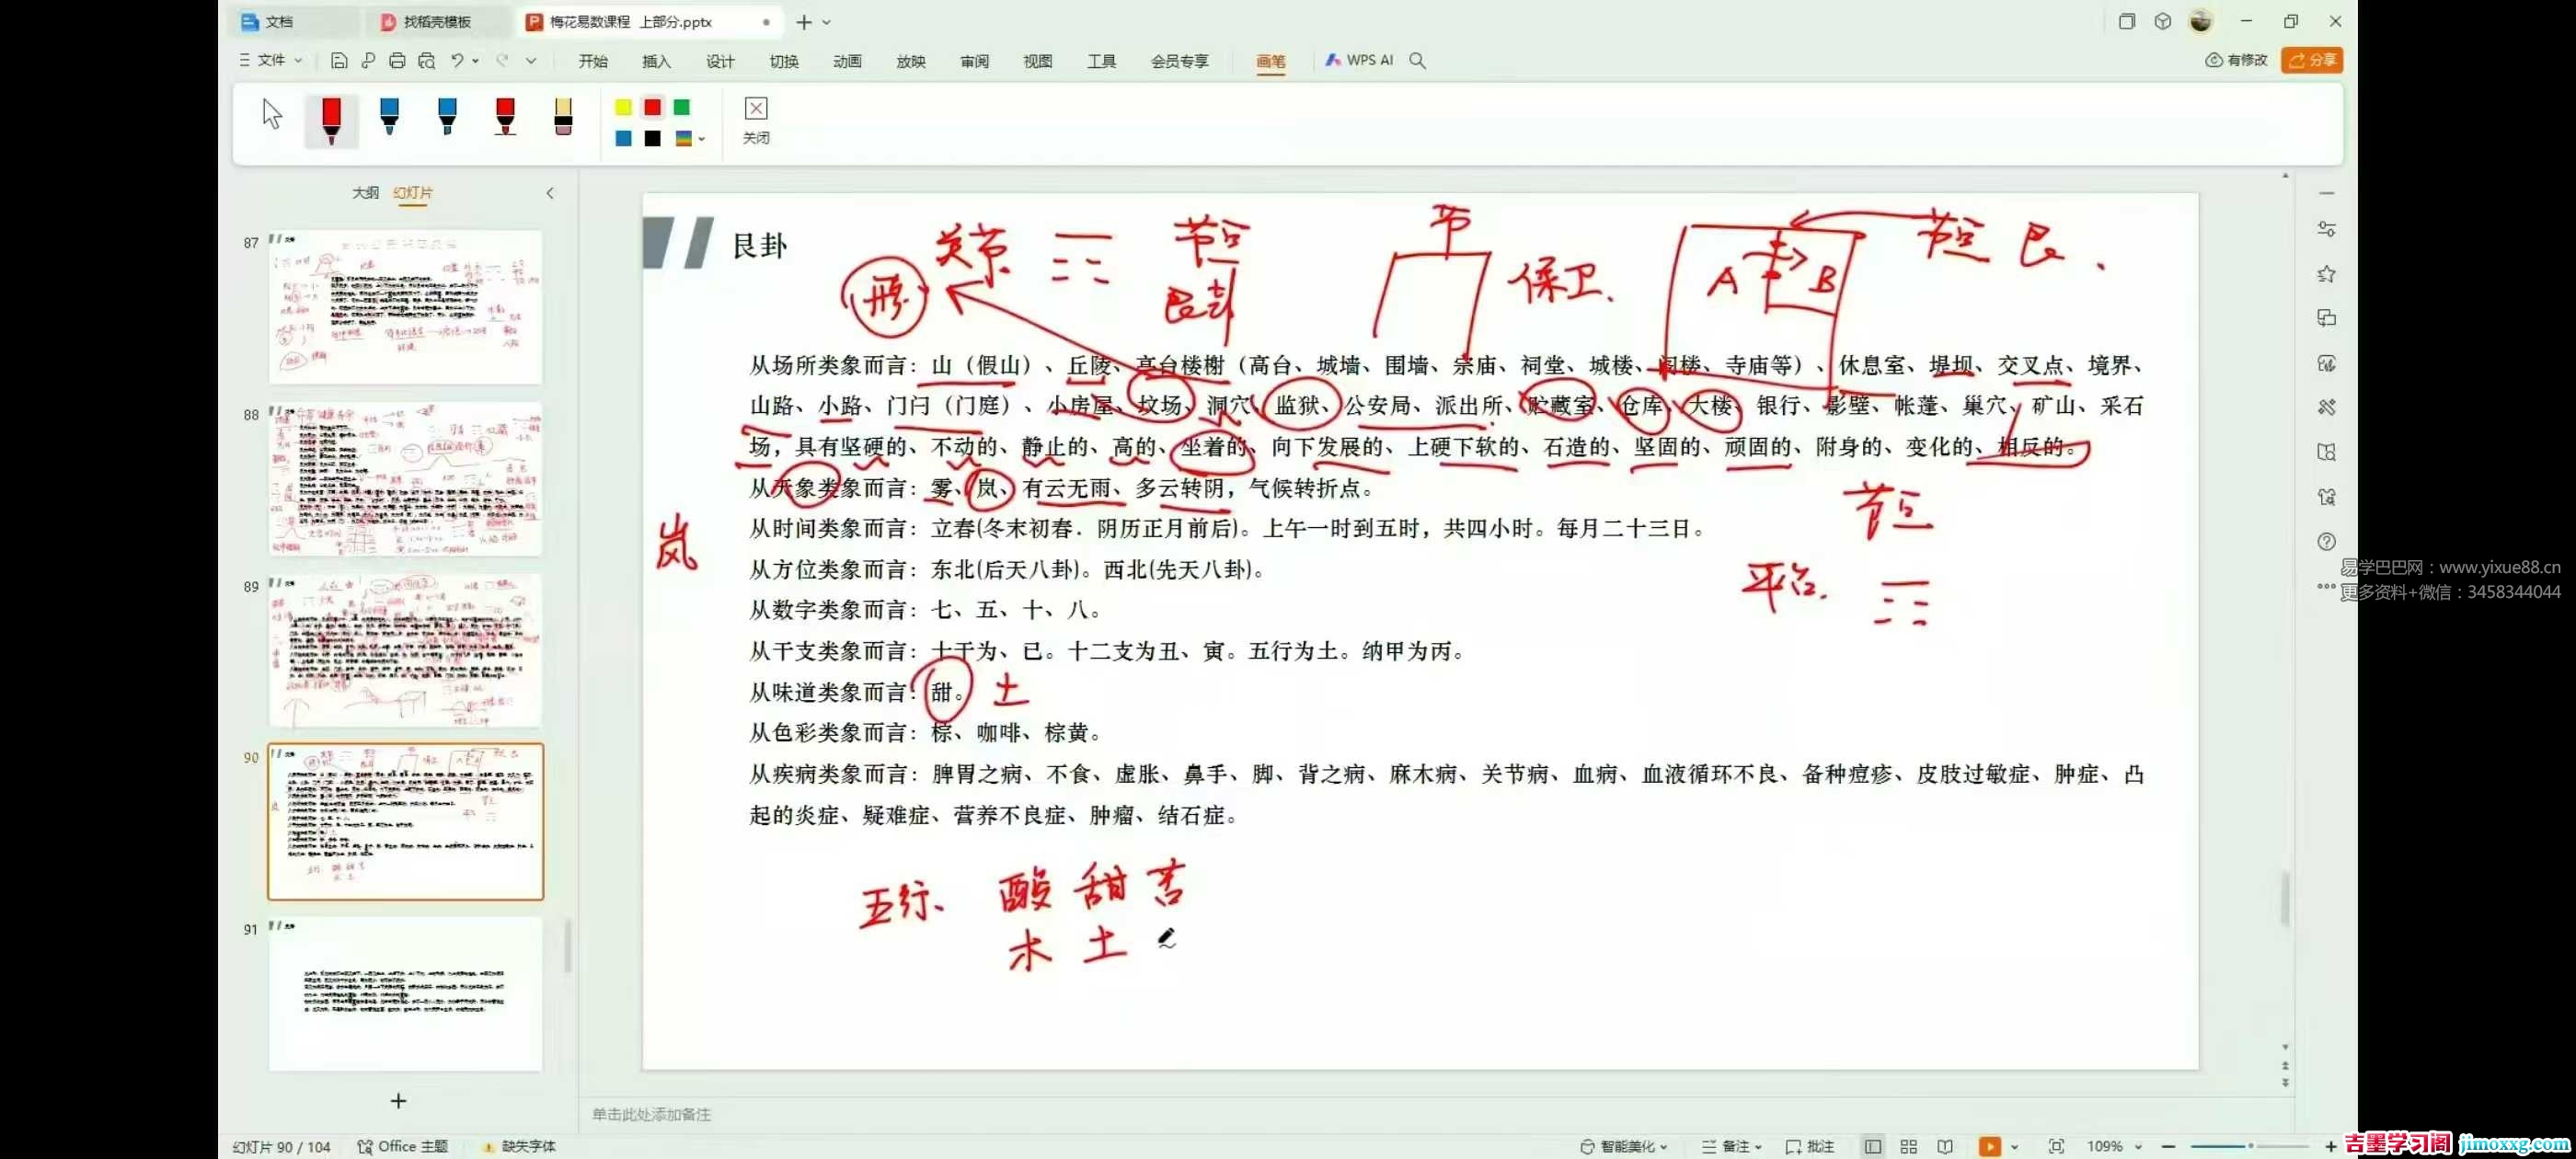 文档 找稻壳模板 梅花易数课程 上部分.pptx
文件 开始 插入 设计 切换 动画 放映 审阅 视图 工具 会员专享 画笔 WPS AI 有修改 分享
关闭
大纲 幻灯片
87
88
89
90
91
艮卦
关节 节
保卫.
A B
艮
从场所类象而言：山（假山）、丘陵、高台楼榭（高台、城墙、围墙、宗庙、祠堂、城楼、阁楼、寺庙等）、休息室、堤坝、交叉点、境界、
山路、小路、门闩（门庭）、小房屋、坟场、洞穴、监狱、公安局、派出所、贮藏室、仓库、大楼、银行、影壁、帐蓬、巢穴、矿山、采石
场，具有坚硬的、不动的、静止的、高的、坐着的、向下发展的、上硬下软的、石造的、坚固的、顽固的、附身的、变化的、相反的。
从天象类象而言：雾、岚、有云无雨、多云转阴，气候转折点。
从时间类象而言：立春(冬末初春．阴历正月前后)。上午一时到五时，共四小时。每月二十三日。
岚
从方位类象而言：东北(后天八卦)。西北(先天八卦)。
平台.
从数字类象而言：七、五、十、八。
从干支类象而言：十干为、已。十二支为丑、寅。五行为土。纳甲为丙。
从味道类象而言：甜。 土
从色彩类象而言：棕、咖啡、棕黄。
从疾病类象而言：脾胃之病、不食、虚胀、鼻手、脚、背之病、麻木病、关节病、血病、血液循环不良、备种痘疹、皮肢过敏症、肿症、凸
起的炎症、疑难症、营养不良症、肿瘤、结石症。
五行、 酸 甜 苦
木 土
易学巴巴网：www.yixue88.cn
更多资料+微信：3458344044
单击此处添加备注
幻灯片 90 / 104 Office 主题 缺失字体 智能美化 备注 批注 109%
吉墨学习阁 jimoxxg.com